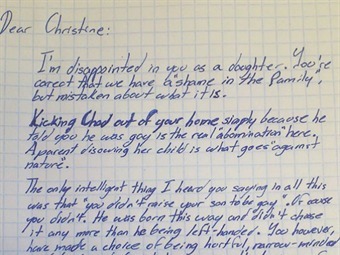 Dear Christine:
I'm disappointed in you as a daughter. You're
correct that we have a "shame in the family",
but mistaken about what it is.
Kicking Chad out of your home simply because he
told you he was gay is the real "abomination" here.
A parent disowning her child is what goes "against
nature".
The only intelligent thing I heard you saying in all this
was that "you didn't raise your son to be gay". Of course
you didn't. He was born this way and didn't choose
it any more than he being left-handed. You however,
have made a choice of being hurtful, narrow-minded